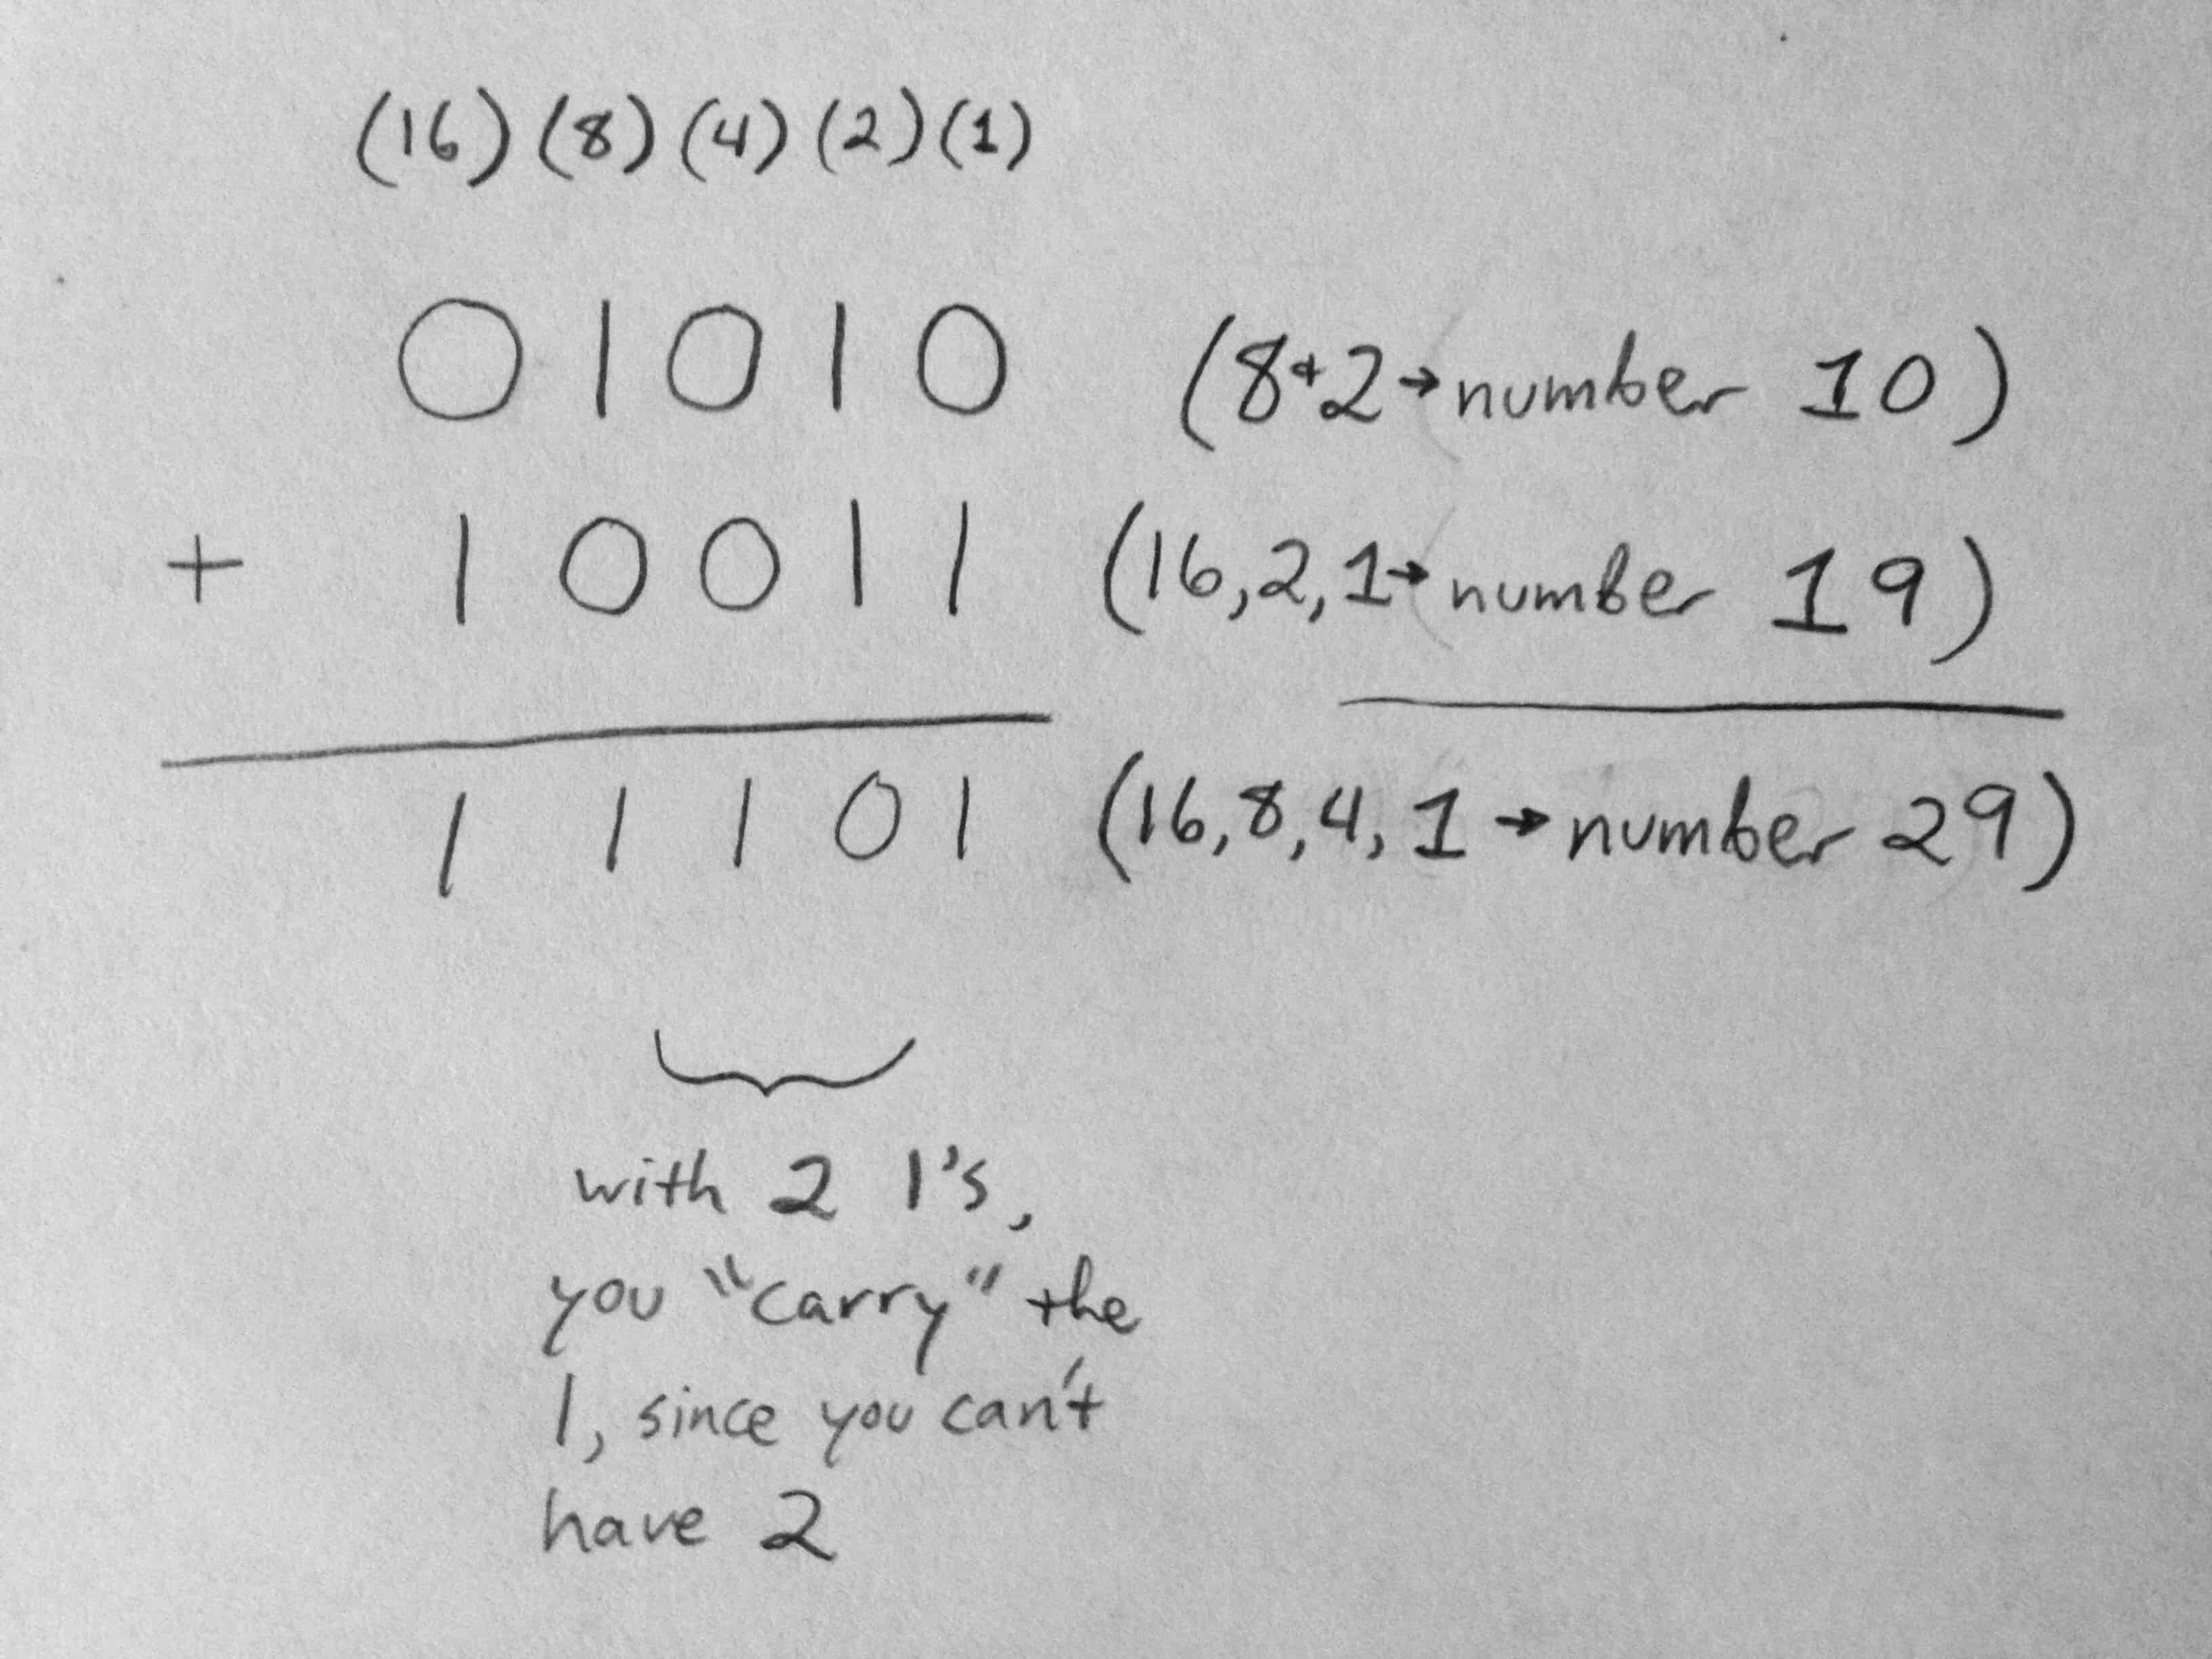 (16) (8) (4) (2) (1)
0 1 0 1 0 (8+2→number 10)
+ 1 0 0 1 1 (16,2,1→number 19)
1 1 1 0 1 (16,8,4,1→number 29)
with 2 1's,
you "carry" the
1, since you can't
have 2